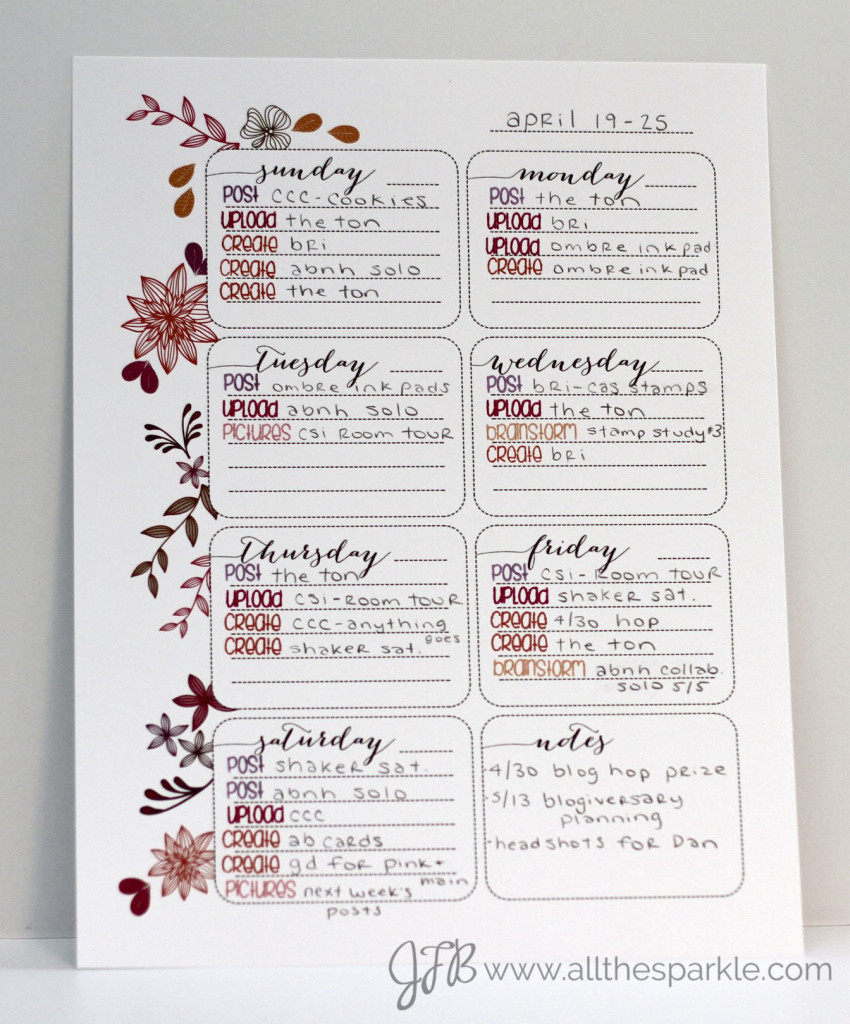 april 19-25
sunday
POST ccc-cookies
UPLOAD the ton
CREATE bri
CREATE abnh solo
CREATE the ton
monday
POST the ton
UPLOAD bri
UPLOAD ombre ink pad
CREATE ombre ink pad
tuesday
POST ombre ink pads
UPLOAD abnh solo
PICTURES csi room tour
wednesday
POST bri-cas stamps
UPLOAD the ton
BRAINSTORM stamp study #3
CREATE bri
thursday
POST the ton
UPLOAD csi-room tour
CREATE ccc-anything
goes
CREATE shaker sat.
friday
POST csi-room tour
UPLOAD shaker sat.
CREATE 4/30 hop
CREATE the ton
BRAINSTORM abnh collab.
solo 5/5
saturday
POST shaker sat.
POST abnh solo
UPLOAD ccc
CREATE ab cards
CREATE gd for pink+
main
PICTURES next week's
posts
notes
-4/30 blog hop prize
-5/13 blogiversary
planning
-headshots for Dan
JFB www.allthesparkle.com